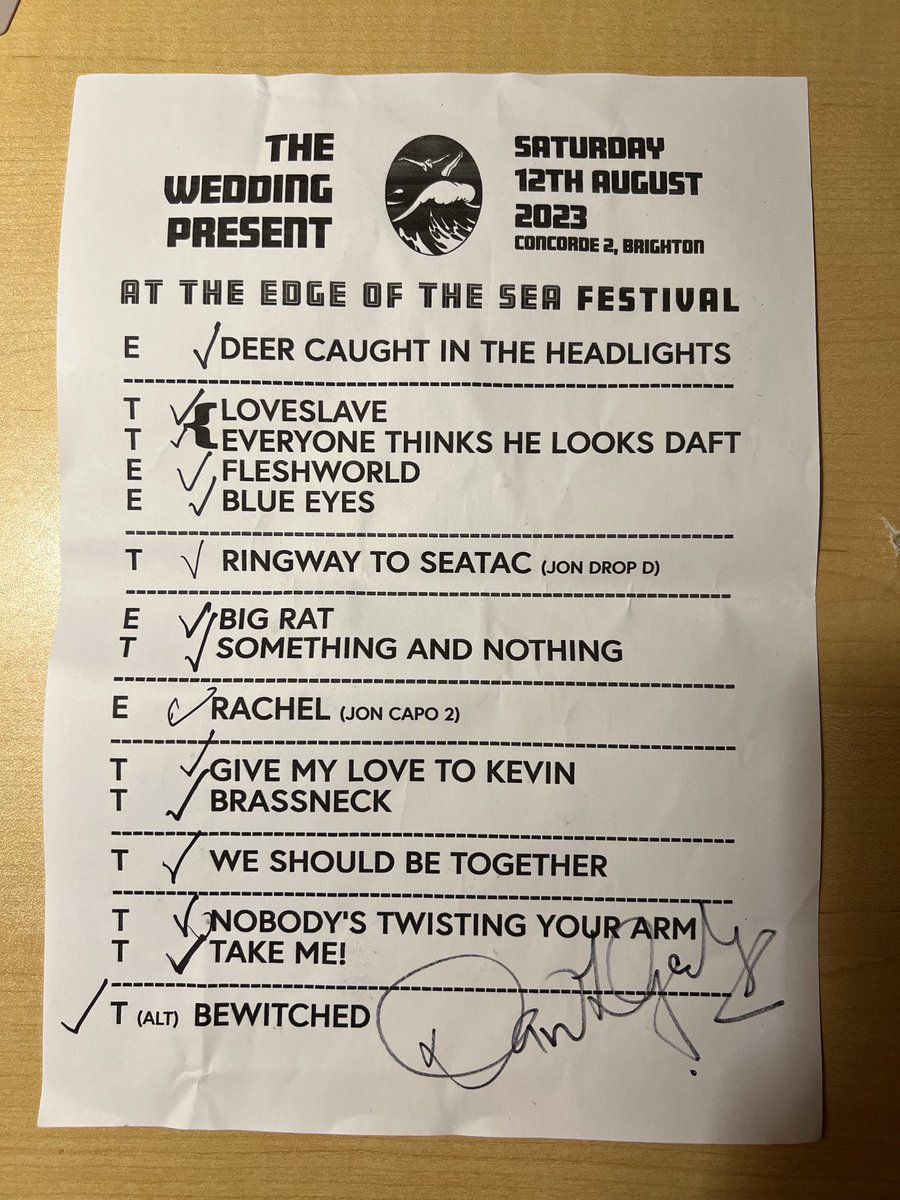 THE
WEDDING
PRESENT
SATURDAY
12TH AUGUST
2023
CONCORDE 2, BRIGHTON
AT THE EDGE OF THE SEA FESTIVAL
E DEER CAUGHT IN THE HEADLIGHTS
T LOVESLAVE
T EVERYONE THINKS HE LOOKS DAFT
E FLESHWORLD
E BLUE EYES
T RINGWAY TO SEATAC (JON DROP D)
E BIG RAT
T SOMETHING AND NOTHING
E RACHEL (JON CAPO 2)
T GIVE MY LOVE TO KEVIN
T BRASSNECK
T WE SHOULD BE TOGETHER
T NOBODY'S TWISTING YOUR ARM
T TAKE ME!
T (ALT) BEWITCHED